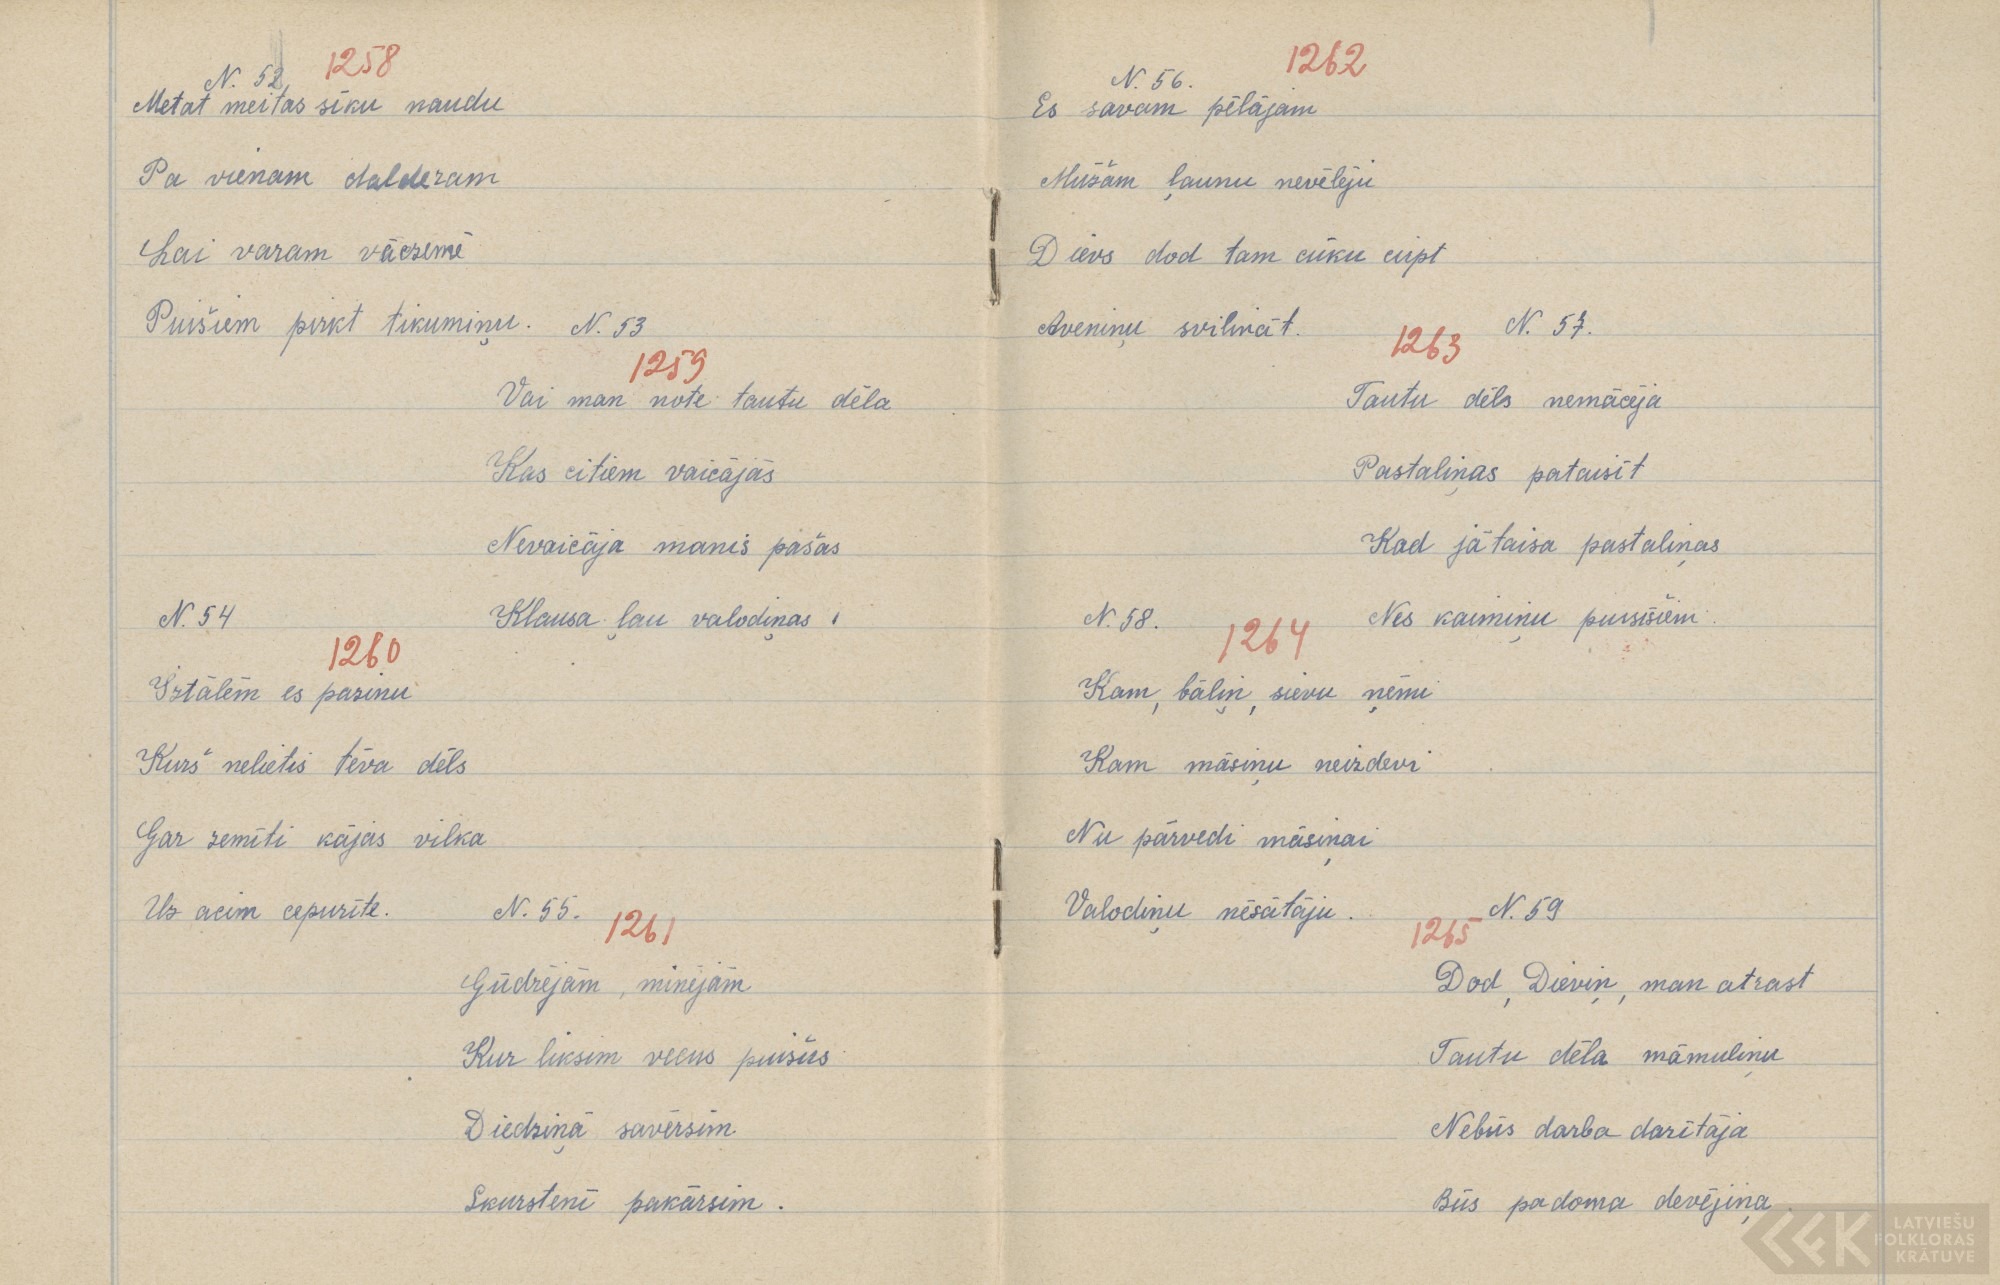 N. 52 1258
Metat meitas sīku naudu
Pa vienam dalderam
Lai varam vāczemē
Puišiem pirkt tikumiņu.
N. 53
1259
Vai man note tautu dēla
Kas citiem vaicājās
Nevaicāja manis pašas
Klausa ļau valodiņas.
N. 54
1260
Iztālēm es pazinu
Kurš nelietis tēva dēls
Gar zemīti kājas vilka
Uz acim cepurīte.
N. 55.
1261
Gūdrējām, minējām
Kur liksim vecus puišus
Diedziņā savērsim
Skurstenī pakārsim.
1262
N. 56.
Es savam pēlājam
Mūžam ļaunu nevēlēju
Dievs dod tam cūku cirpt
Aveniņu svilināt.
N. 57.
1263
Tautu dēls nemācēja
Pastaliņas pataisīt
Kad jātaisa pastaliņas
Nes kaimiņu puisīšiem.
N. 58.
1264
Kam, bāliņ, sievu ņēmi
Kam māsiņu neizdevi
Nu pārvedi māsiņai
Valodiņu nēsātāju.
N. 59
1265
Dod, Dieviņ, man atrast
Tautu dēla māmuliņu
Nebūs darba darītāja
Būs padoma devējiņa
LATVIEŠU
FOLKLORAS
KRĀTUVE